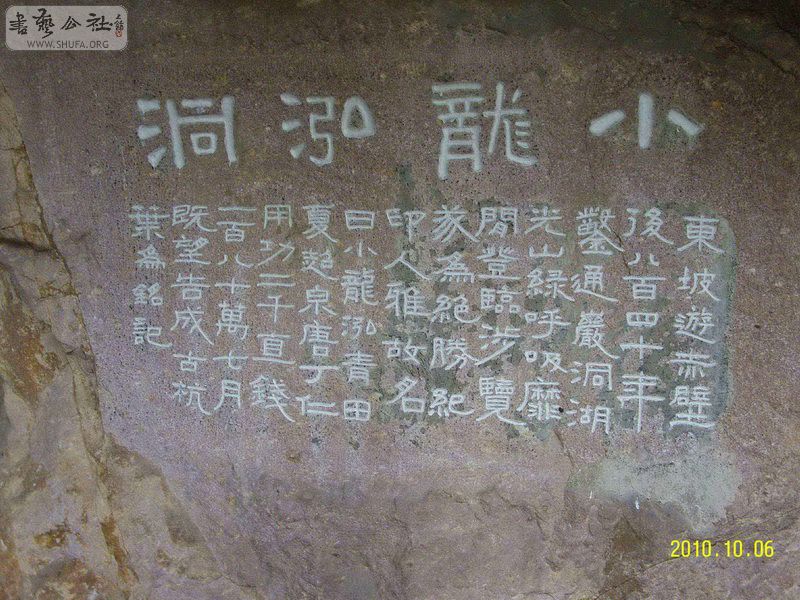 書藝公社
WWW.SHUFA.ORG
小龍泓洞
東坡遊赤壁
後八百四十年
鑿通巖洞湖
光山綠呼吸靡
閒登臨涉覽
㒸為絕勝紀
印人雅故名
曰小龍泓青田
夏超泉唐丁仁
用功二千直錢
一百八十萬七月
既望告成古杭
葉為銘記
2010.10.06